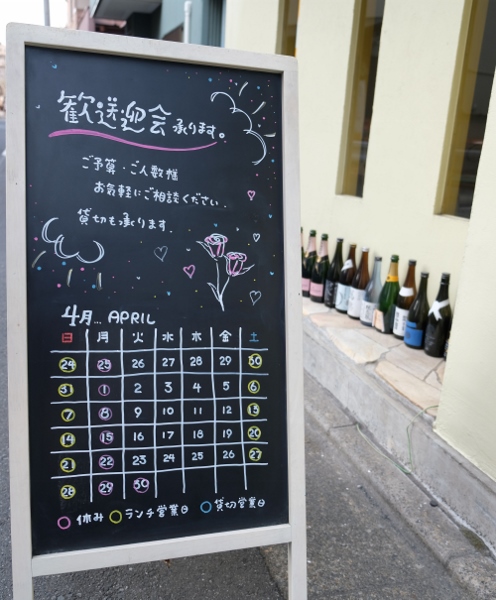 歓送迎会承ります。
ご予算・ご人数様
お気軽にご相談ください.
貸切も承ります.
4月... APRIL
日 月 火 水 木 金 土
24 25 26 27 28 29 30
31 1 2 3 4 5 6
7 8 9 10 11 12 13
14 15 16 17 18 19 20
21 22 23 24 25 26 27
28 29 30
休み ランチ営業日 貸切営業日